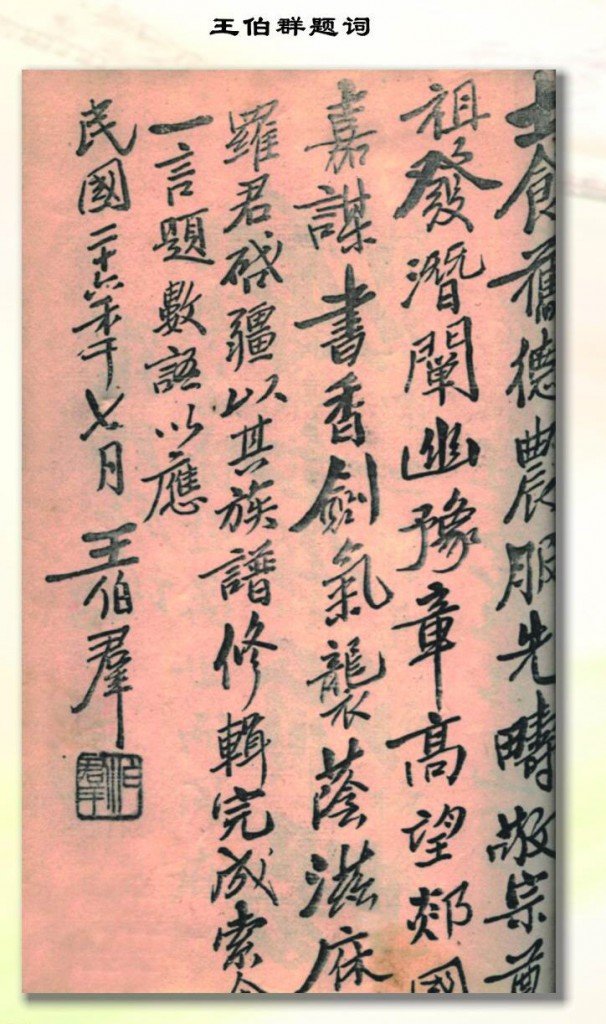 王伯群题词
士食舊德農服先疇敬宗尊
祖發潛闡幽豫章高望郯國
嘉謀書香劍氣襲蔭滋庥
羅君啓疆以其族譜修輯完成索余
一言題數語以應
民國二十六年七月 王伯羣